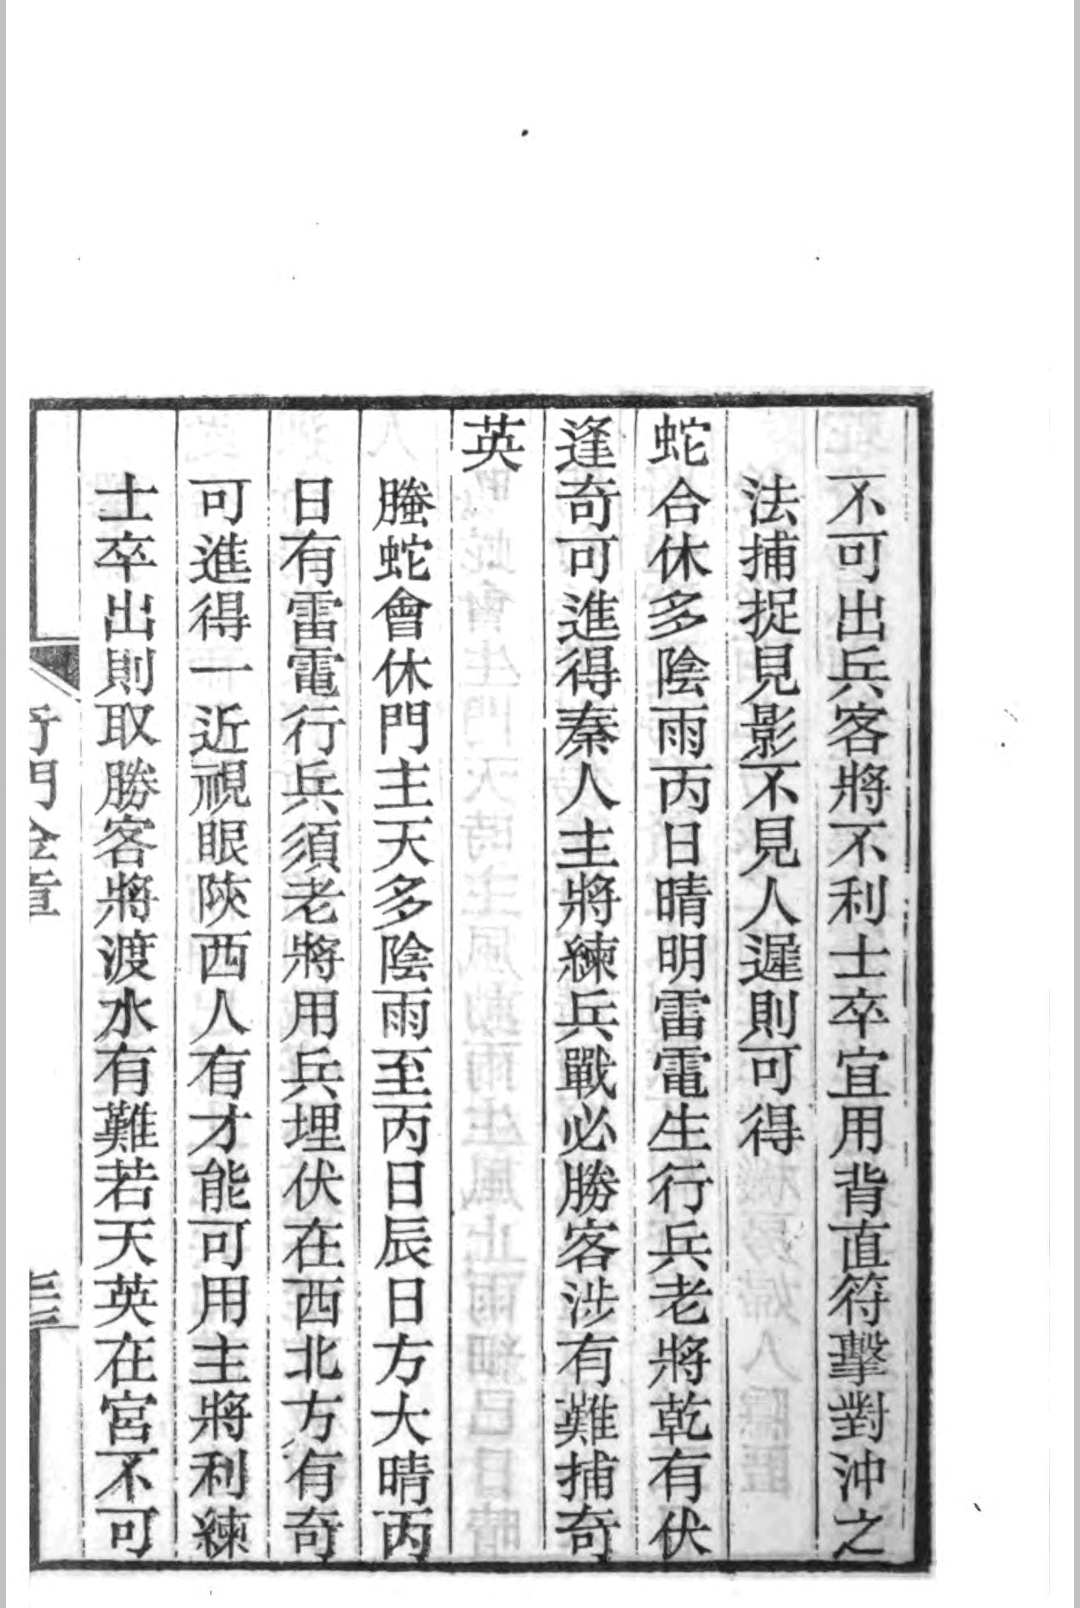 不可出兵客將不利士卒宜用背直符擊對沖之
法捕捉見影不見人遲則可得
蛇合休多陰雨丙日晴明雷電生行兵老將乾有伏
逢奇可進得秦人主將練兵戰必勝客涉有難捕奇
英
螣蛇會休門主天多陰雨至丙日辰日方大晴丙
日有雷電行兵須老將用兵埋伏在西北方有奇
可進得一近視眼陝西人有才能可用主將利練
士卒出則取勝客將渡水有難若天英在宮不可